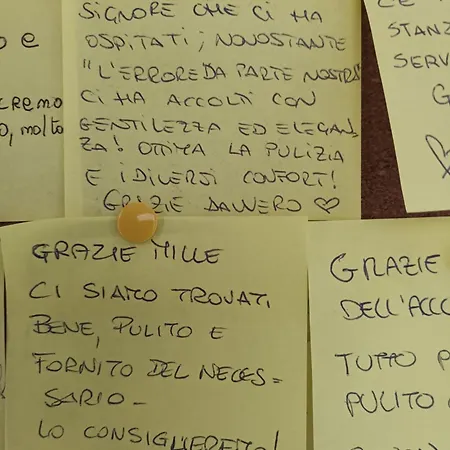 SIGNORE CHE CI HA
OSPITATI; NONOSTANTE
"L'ERRORE DA PARTE NOSTRA"
CI HA ACCOLTI CON
GENTILEZZA ED ELEGAN
ZA! OTTIMA LA PULIZIA
E I DIVERSI CONFORT!
GRAZIE DAVVERO ♡
o e
cremo
o, molto
STANZ
SERV
G
♡
GRAZIE MILLE
CI SIAMO TROVATI
BENE, PULITO E
FORNITO DEL NECES=
SARIO-
LO CONSIGLIEREMO!
GRAZIE
DELL'ACCO
TUTTO P
PULITO